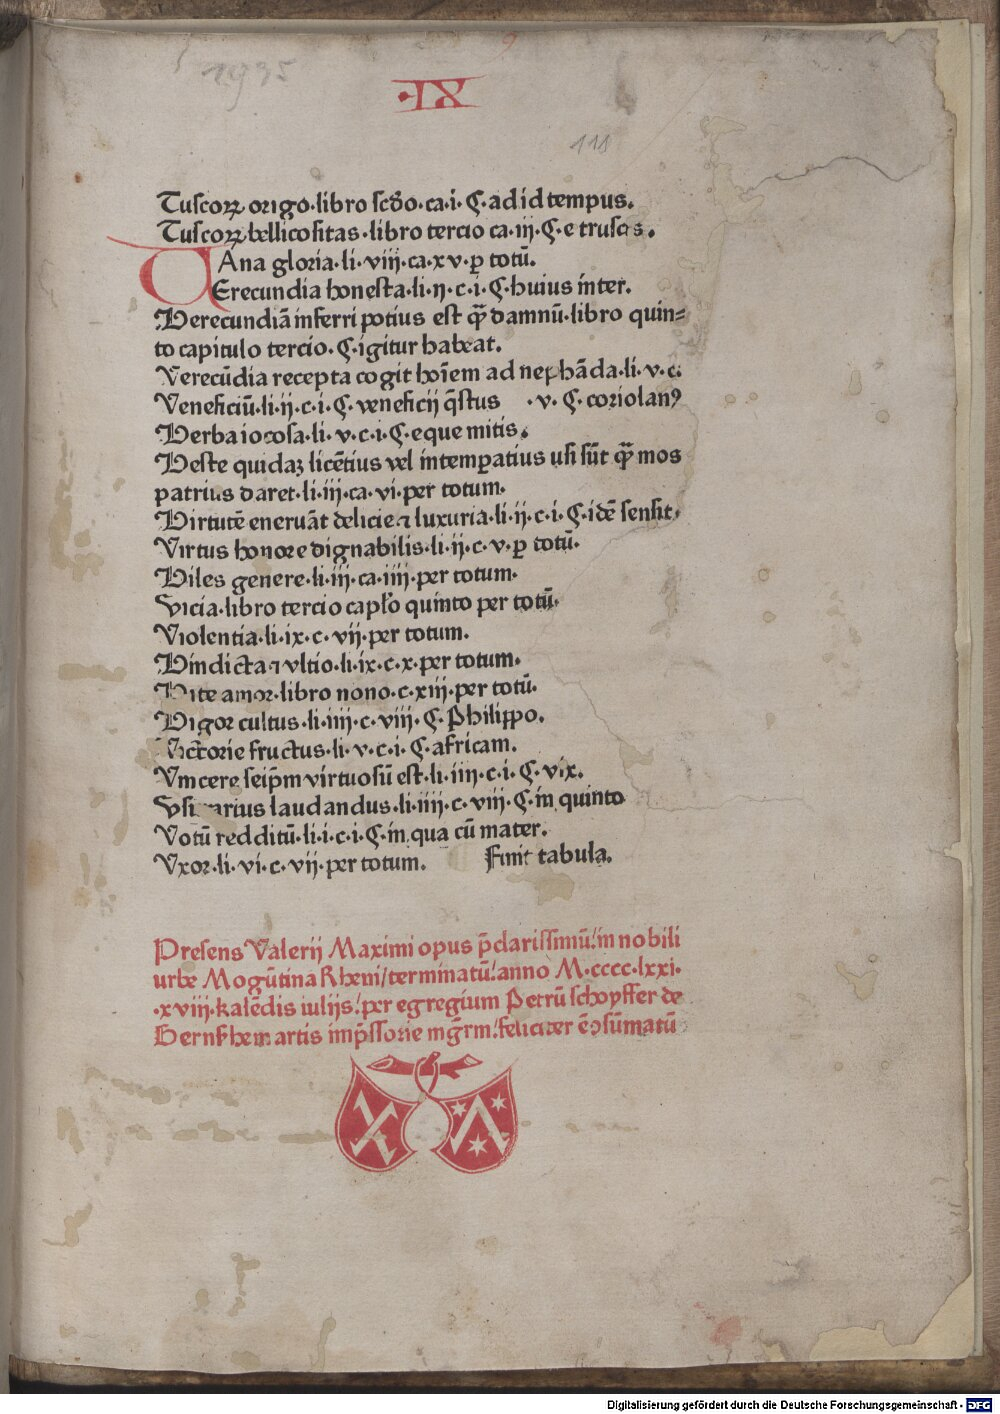 1935
·IX
111
Tuscoꝝ origo·libro scďo·ca·i·ꝯ·ad id tempus.
Tuscoꝝ bellicositas·libro tercio ca·iij·ꝯ·e truscis.
VAna gloria·li·viij·ca·xv·ꝑ totū.
Erecundia honesta·li·ij·c·i·ꝯ·huius inter.
Verecundiā inferri potius est qͣꝫ damnū·libro quin⸗
to capitulo tercio·ꝯ·igitur habeat.
Verecūdia recepta cogit hoīem ad nephāda·li·v·c·
Veneficiū·li·ij·c·i·ꝯ·veneficij q̄stus ·v·ꝯ·coriolanꝰ
Verba iocosa·li·v·c·i·ꝯ·eque mitis.
Veste quidaꝫ licētius vel intemꝑatius usi sūt qͣꝫ mos
patrius daret·li·iij·ca·vi·per totum.
Virtutē eneruāt delicie ⁊ luxuria·li·ij·c·i·ꝯ·idē sensit·
Virtus honore dignabilis·li·ij·c·v·ꝑ totū.
Viles genere·li·iij·ca·iiij·per totum·
Vicia·libro tercio capło quinto per totū·
Violentia·li·ix·c·vij·per totum.
Vindicta ⁊ vltio·li·ix·c·x·per totum.
Vite amor·libro nono·c·xiij·per totū.
Vigor cultus·li·iiij·c·viij·ꝯ·Philippo.
Victorie fructus·li·v·c·i·ꝯ·africam.
Vincere seip̄m virtuosū est·li·iiij·c·i·ꝯ·vix.
laudandus·li·iiij·c·viij·ꝯ·in quinto
Votū redditū·li·i·c·i·ꝯ·in qua cū mater.
Vxor·li·vi·c·vij·per totum. Finit tabula.
Presens Valerij Maximi opus p̄clarissimū/in nobili
urbe Mogūtina Rheni/terminatū/anno M·cccc·lxxi·
·xviij·kalēdis iulijs/per egregium Petrū schoyffer de
Gernßhem artis imp̄ssorie mgr̄m/feliciter ē ↄsūmatū
Digitalisierung gefördert durch die Deutsche Forschungsgemeinschaft · DFG